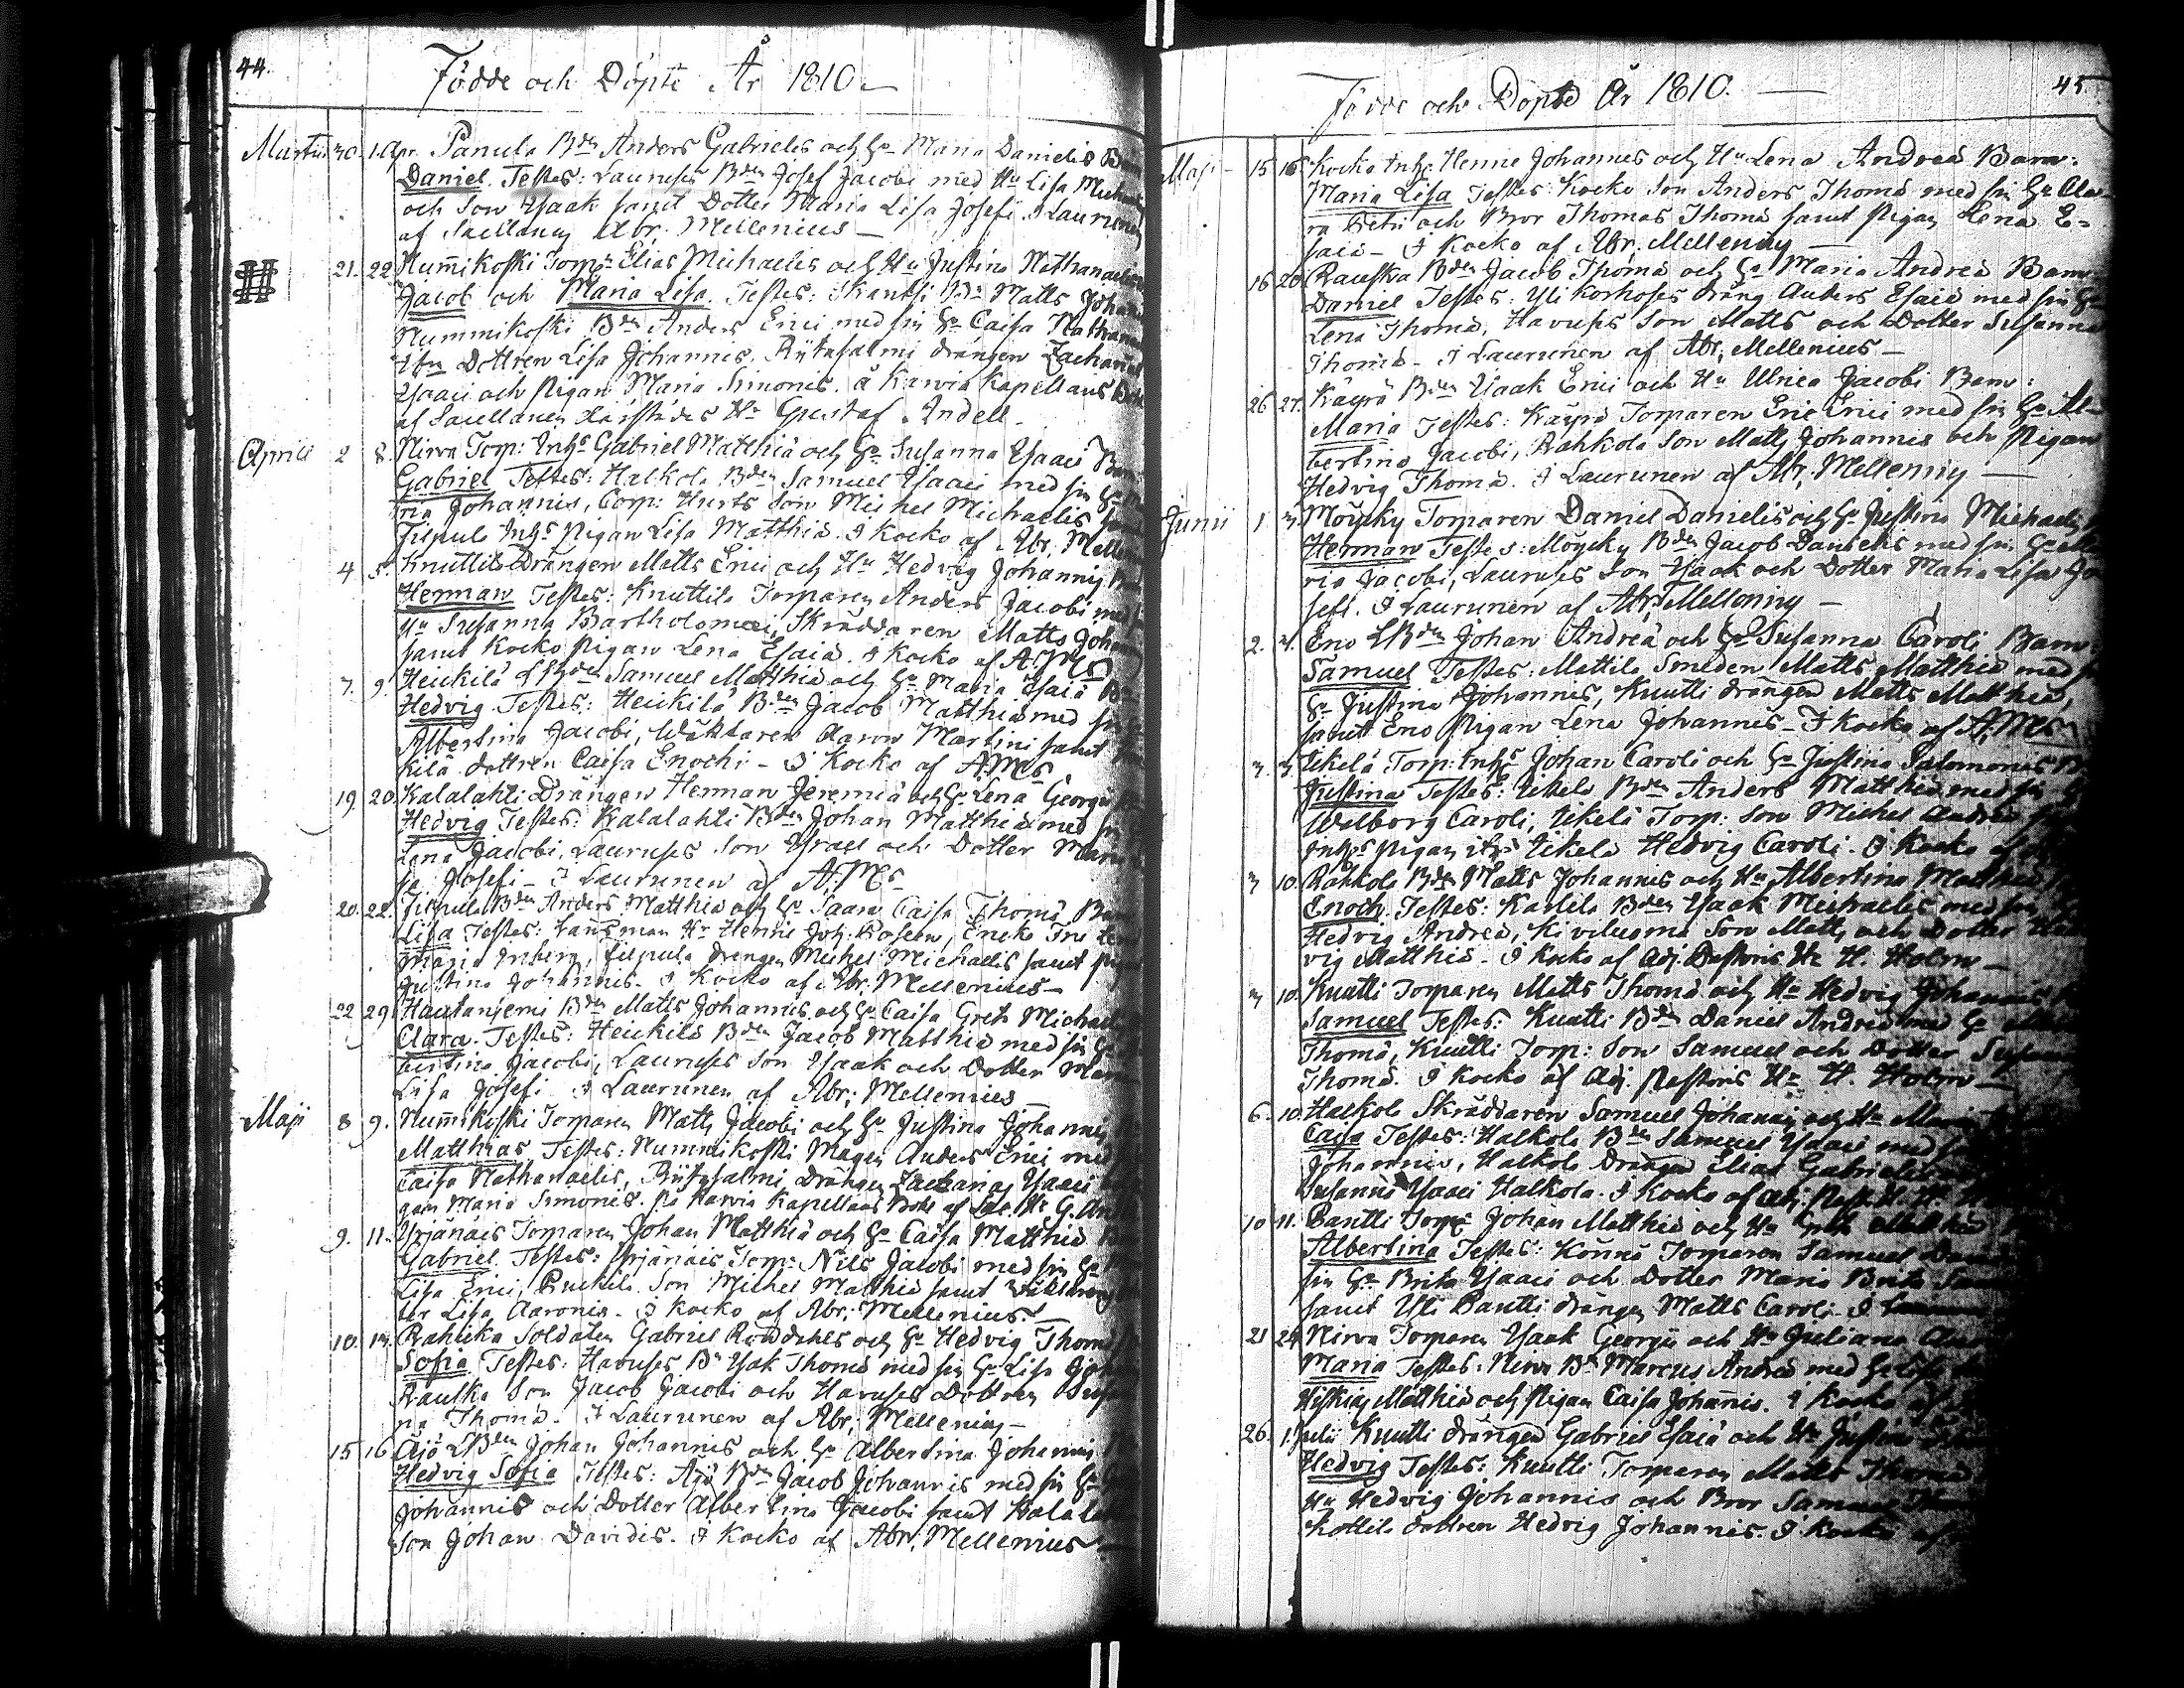 44.
Födde och Döpte År 1810
Martii 30. 1. Apr. Panula Bdn Anders Gabrielis och Hu Maria Danielis Barn
Daniel. Testes: Lauruses Bdn Josef Jacobi med Hu Lisa Michae
och Son Ysaak samt Dotter Maria Lisa Josefi. I Laurunen
af Sacellanen Abr. Mellenius
21. 22. Num̄ikoski Torpn Elias Michaelis och Hu Justina Nathanaelis
Jacob och Maria Lisa. Testes: Skantsi Bn Matts Johan
Nummikoski Bdn Anders Erici med sin Hu Caisa Nathana
Dottren Lisa Johannis. Rytäsalmi drängen Zacharias
Ysaaci och Pigan Maria Simonis. å Karvia Kapellans Bohl
af Sacellanen därstädes Hr Gustaf Andell
Aprill 2 8. Nirva Torp: Inhs Gabriel Matthiä och Hu Susanna Esaaci Barn
Gabriel Testes: Halkola Bdn Samuel Ysaaci med sin Hu Ma
ria Johannis, Corp: Hurts Son Michel Michaelis samt
Filpula Inhs Pigan Lisa Matthiä. I Kocko af Abr. Melle
4 5. Knuttila Drängen Matts Erici och Hu Hedvig Johannis Ba
Herman Testes: Knuttila Torparen Anders Jacobi med s
Hu Susanna Bartholomæi, Skräddaren Matts Johan
samt Kocko Pigan Lena Esaiä. I Kocko af A. Ms
7. 9. Heickilä LBdn Samuel Matthiä och Hu Maria Esaiä Ba
Hedvig Testes: Heickilä Bdn Jacob Matthiä med sin
Albertina Jacobi, Wäktaren Aaron Martini samt
kilä dottren Caisa Enochi - I Kocko af AMs
19. 20. Kalalahti Drängen Herman Jeremiä och Hu Lena Georgii
Hedvig Testes: Kalalahti Bdn Johan Matthiä med sin
Lena Jacobi, Lauruses Son Ysrael och Dotter Maria
Josefi - I Laurunen af A. Ms
20. 22. Filpula Bdn Anders Matthiä och Hu Saara Caisa Thomä Ba
Lisa Testes: Länsman Hr Henric Joh: Rosen,
Maria Inberg, Filpula drengen Michel Michaelis samt Pig
Justina Johannis. I Kocko af Abr. Mellenius
22 29 Hautanjemi Bdn Matts Johannis och Hu Caisa Greta Michael
Clara. Testes: Heickilä Bdn Jacob Matthiä med sin Hu
bertina Jacobi, Lauruses Son Ysaak och Dotter Maria
Lisa Josefi I Laurunen af Abr; Mellenius
Maji 8 9. Num̄ikoski Torparen Matts Jacobi och Hu Justina Johannis
Matthias Testes: Nummikoski Magen Anders Erici med
Caisa Nathanaelis, Rytäsalmi, Drängen Zacharias Ysaaci
gan Maria Simonis. På Karvia Kapellans Bohl af Sac. Hr G. And
9. 11. Yrjänäis Torparen Johan Matthiä och Hu Caisa Matthiä
Gabriel. Testes: Yrjänäis Torp: Nils Jacobi med sin Hu
Lisa Erici, Ruckila Son Michel Matthiä samt
ter Lisa Aaronis. I Kocko af Abr; Mellenius
10. 14. Rahkika Soldaten Gabriel Roddahls och Hu Hedvig Thomä
Sofia Testes: Havuses Bn Ysak Thomä med sin Hu Lisa
Rauska Son Jacob Jacobi och Havuses Dottren Susa
na Thomä. I Laurunen af Abr; Mellenius
15 16 Äijö LBdn Johan Johannis och Hu Albertina Johannis
Hedvig Sofia Testes: Äijö Bdn Jacob Johannis med sin Hu
Johannis och Dotter Albertina Jacobi samt Kalala
Son Johan Davidis. I Kocko af Abr. Mellenius
45.
Födde och Döpte År 1810.
Maji 15 16 Kocko Inhs Henric Johannis och Hu Lena Andreä Barn.
Maria Lisa Testes: Kocko Son Anders Thomä med sin Hu Cla
ra Petri och Bror Thomas Thomä samt Pigan Lena E-
saiä - I Kocko af Abr. Mellenius
16 20 Rauska Bdn Jacob Thomä och Hu Maria Andreä Barn
Daniel Testes: Yli Korhoses dräng Anders Esaiä med sin Hu
Lena Thomä, Havuses Son Matts och Dotter Susanna
Thomä - I Laurunen af Abr. Mellenius
26 27. Käyrä Bdn Ysaak Erici och Hu Ulrica Jacobi Barn:
Maria Testes: Käyrä Torparen Eric Erici med sin Hu Al-
bertina Jacobi, Rahkola Son Matts Johannis och Pigan
Hedvig Thomä. I Laurunen af Abr. Mellenius
Junii 1 3. Möycky Torparen Daniel Danielis och Hu Justina Michaelis
Herman Testes: Möycky Bdn Jacob Danielis med sin Hu Ma
ria Jacobi, Lauruses Son Ysaak och Dotter Maria Lisa Jo
sefi. I Laurunen af Abr. Mellenius
2. 4. Eno LBdn Johan Andreä och Hu Susanna Caroli Barn
Samuel Testes: Mattila Smeden Matts Matthiä med s
Hu Justina Johannis, Knutti drängen Matts Matthiä,
samt Eno Pigan Lena Johannis - I Kocko af A. Ms
3. Ukelä Torp: Inhs Johan Caroli och Hu Justina Salomonis
Justina Testes: Ukelä Bdn Anders Matthiä med sin
Walborg Caroli, Ukelä Torp: Son Michel Andreä
Inhs Pigan ifrå Ukelä Hedvig Caroli. I Kocko
3 10. Rahkola Bdn Matts Johannis och Hu Albertina Matthiä
Enoch Testes: Karlila Bdn Ysaak Michaelis med sin
Hedvig Andreä, Kiviluoma Son Matts och Dotter Hed
vig Matthiä. I Kocko af Adj. Pastoris Hr H. Holm
3 10. Knutti Torparen Matts Thomä och Hu Hedvig Johannis
Samuel Testes: Knutti Bdn Daniel Andreä med Hu
Thomä, Knutti Torp: Son Samuel och Dotter Susan
Thomä. I Kocko af Adj. Pastoris Hr H. Holm
6. 10. Halkola Skräddaren Samuel Johannis och Hu Maria
Caisa Testes: Halkola Bdn Samuel Ysaaci med
Johannis, Halkola Drängen Elias Gabrielis
Susanna Ysaaci Halkola. I Kocko af Adj. Past. Hr
10 11. Pantti Torpn Johan Matthiä och Hu Greta Matthiä
Albertina Testes: Könnö Torparen Samuel Dan
sin Hu Brita Ysaaci och Dotter Maria Brita Sam
samt Yli Pantti drängen Matts Caroli. I
21 24 Nirva Torparen Ysaak Georgii och Hu Juliana
Maria Testes: Nirva Bn Marcus Andreä med Hu Lisa
Hiskias Matthiä och Pigan Caisa Johannis. I Kocko
26. 1. Julii Knutti drängen Gabriel Esaiä och Hu Justina
Hedvig Testes: Knutti Torparen Matts Thomä
Hu Hedvig Johannis och Bror Samuel
Kottila dottren Hedvig Johannis. I Kocko af